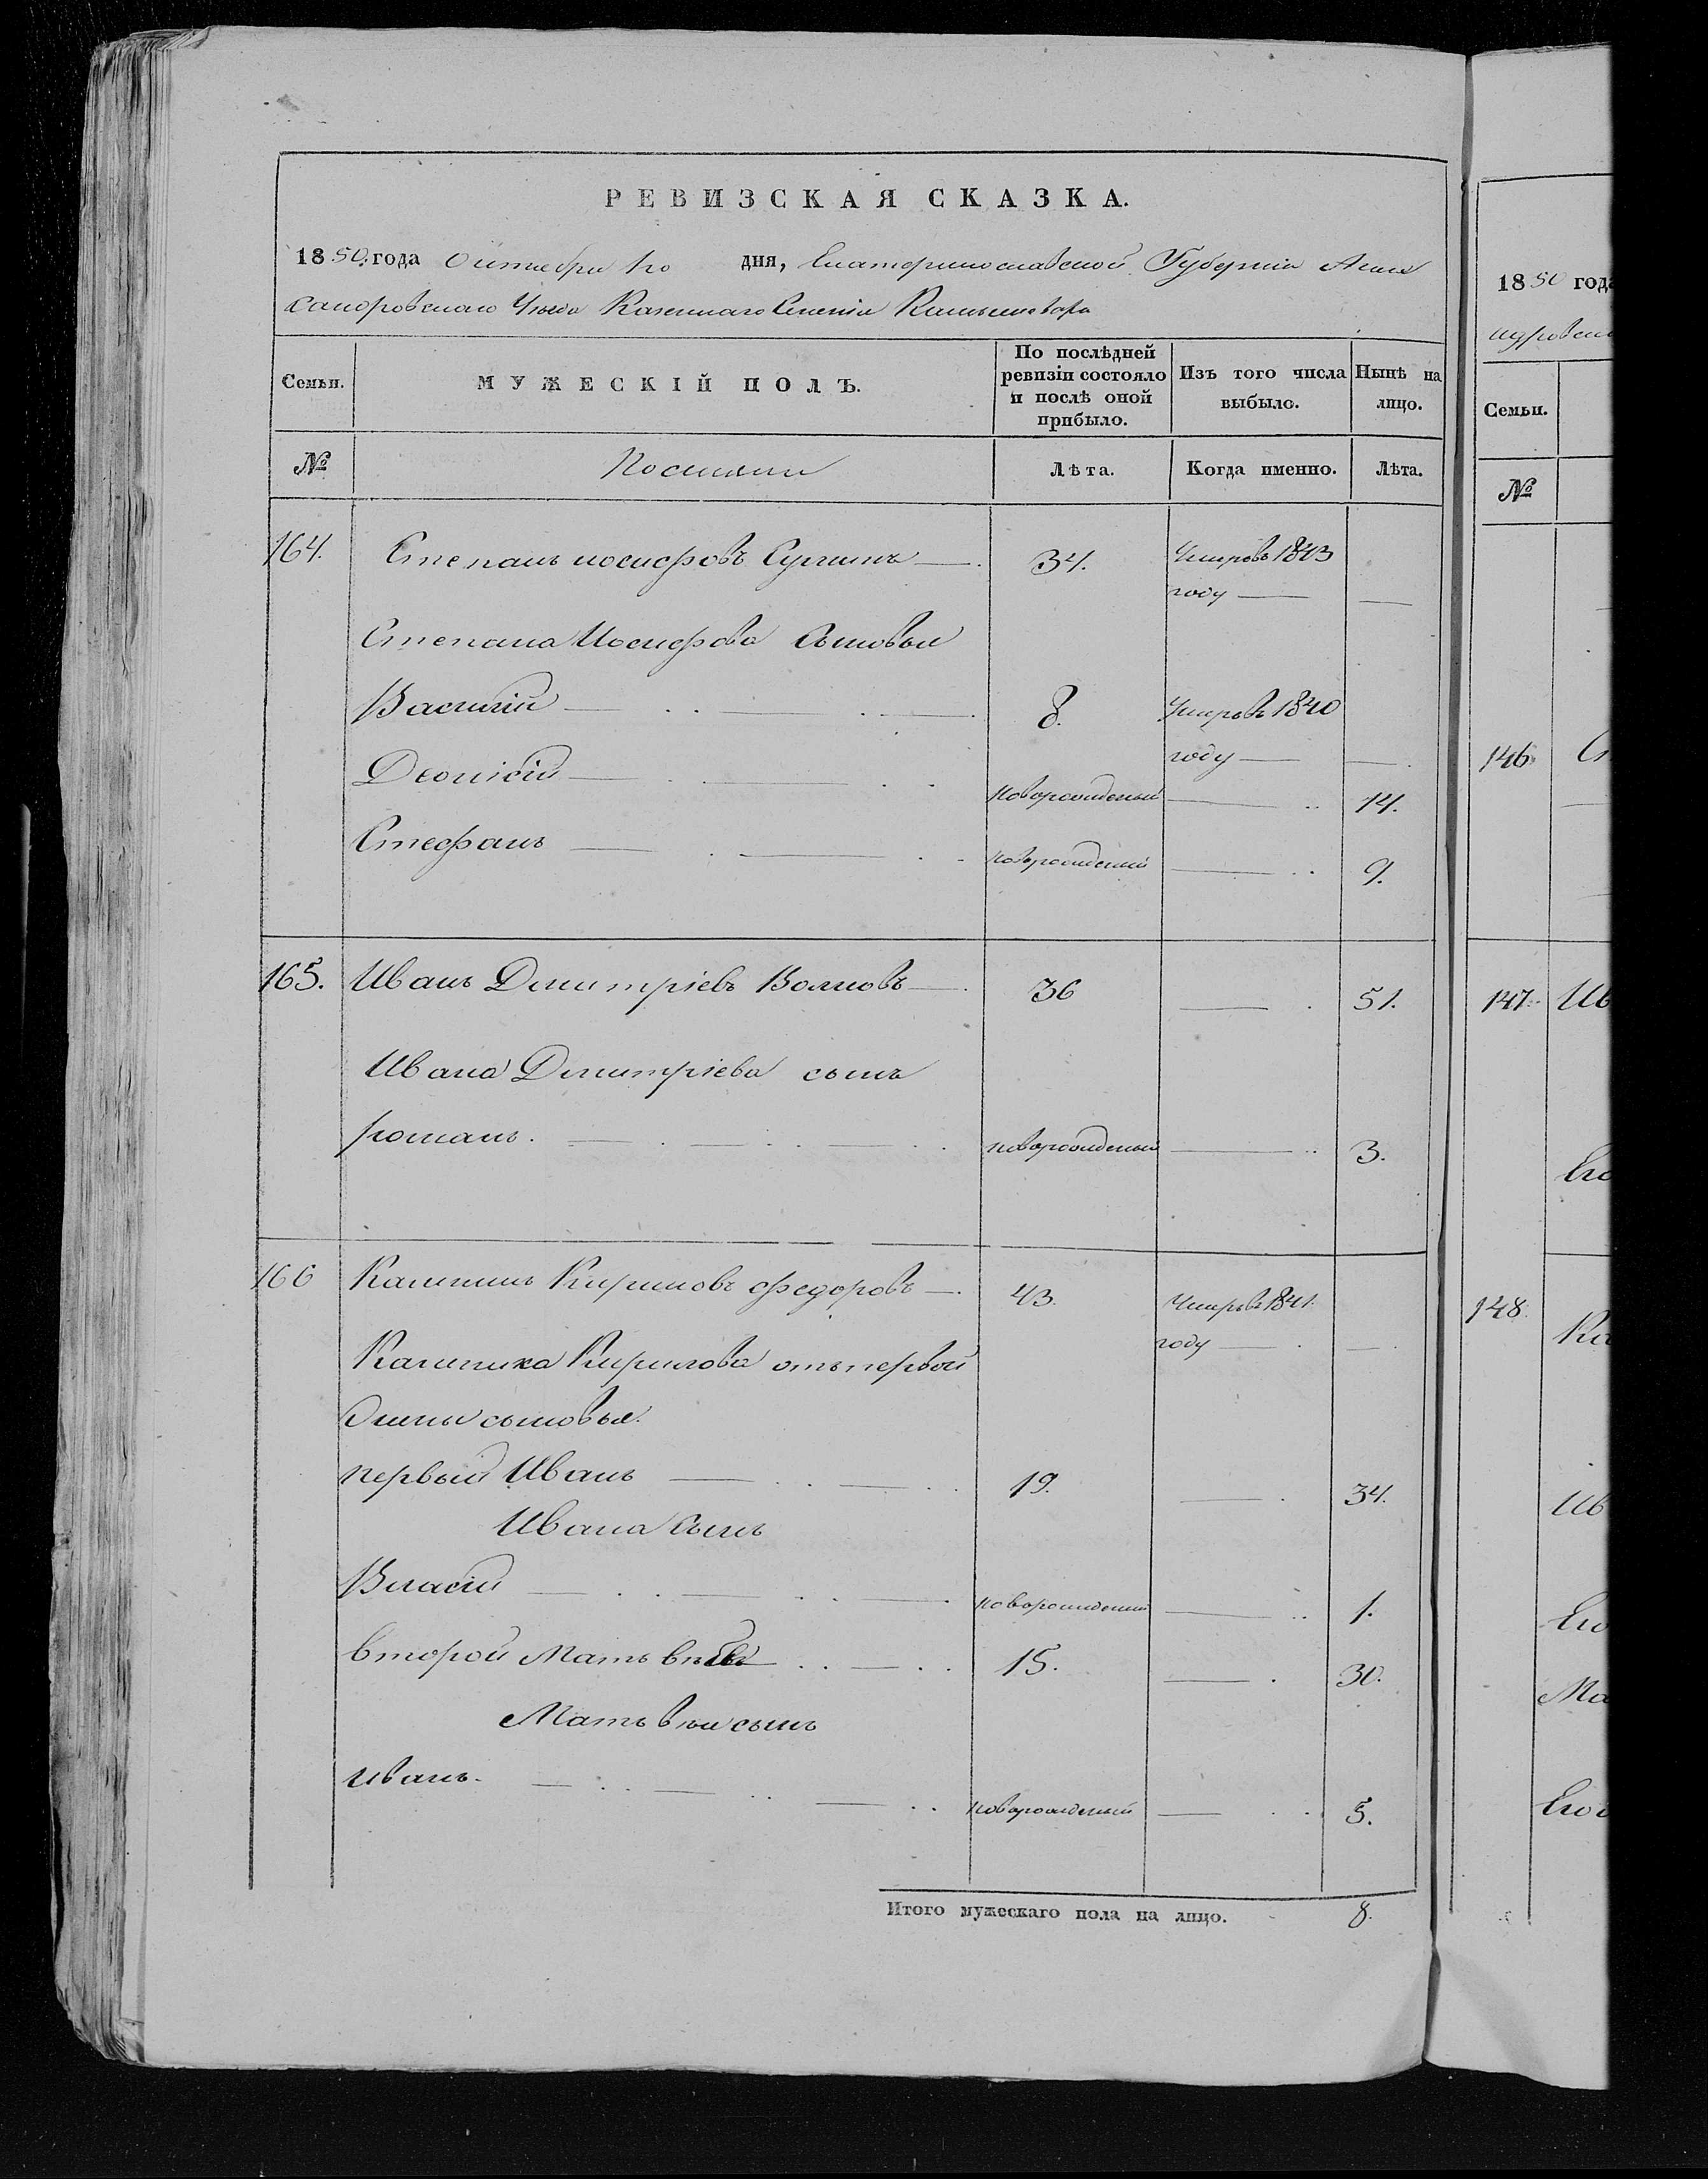 РЕВИЗСКАЯ СКАЗКА.
1850. года Октября 1го дня, Екатеринославской Губерніи Алек
сандровскаго Уѣзда Казеннаго Селенія
Семьи.
МУЖЕСКІЙ ПОЛЪ.
По послѣдней ревизіи состояло и послѣ оной прибыло.
Изъ того числа выбыло.
Нынѣ на лицо.
№
Лѣта.
Когда именно.
Лѣта.
164. Степанъ иосифовъ 34. Умеръ въ 1843
году
Степана Иосифова сыновья
Василій 8. Умеръ въ 1840
году
Деонісій новорожденый 14.
Стефанъ новорожденый 9.
165. Иванъ Дмитріевъ Волковъ 36 51.
Ивана Дмитріева сынъ
романъ. новорожденый 3.
166 Калиникъ Кириловъ федоровъ 43. Умеръ въ 1841.
году
Калиника Кирилова отъ первой
Жены сыновья.
первый Иванъ 19. 34.
Ивана сынъ
Власій новорожденый 1.
второй Матвѣй 15. 30.
Матвѣя сынъ
иванъ. новорожденый 5.
Итого мужескаго пола на лицо. 8.
1850 года
Семьи.
№
146.
147. Ив
148. Ка
Ив
Его
Ма
Его